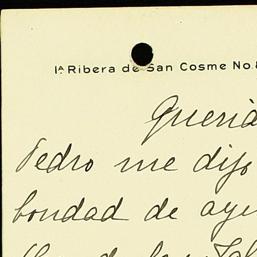 1ª Ribera de San Cosme No.
Queri
Pedro me dijo
bondad de ayu